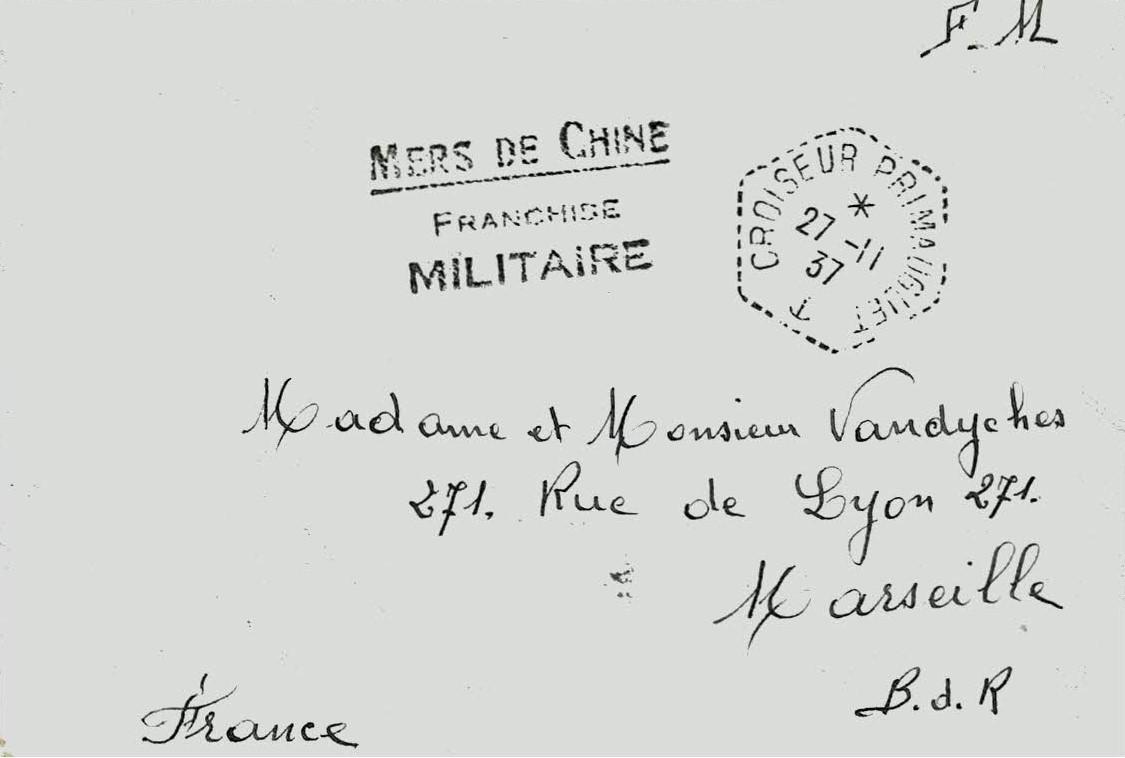 F.M
MERS DE CHINE
FRANCHISE
MILITAIRE
CROISEUR PRIMAUGUET
*
27 -11
37
T
Madame et Monsieur Vandyches
271. Rue de Lyon 271.
Marseille
B.d.R
France